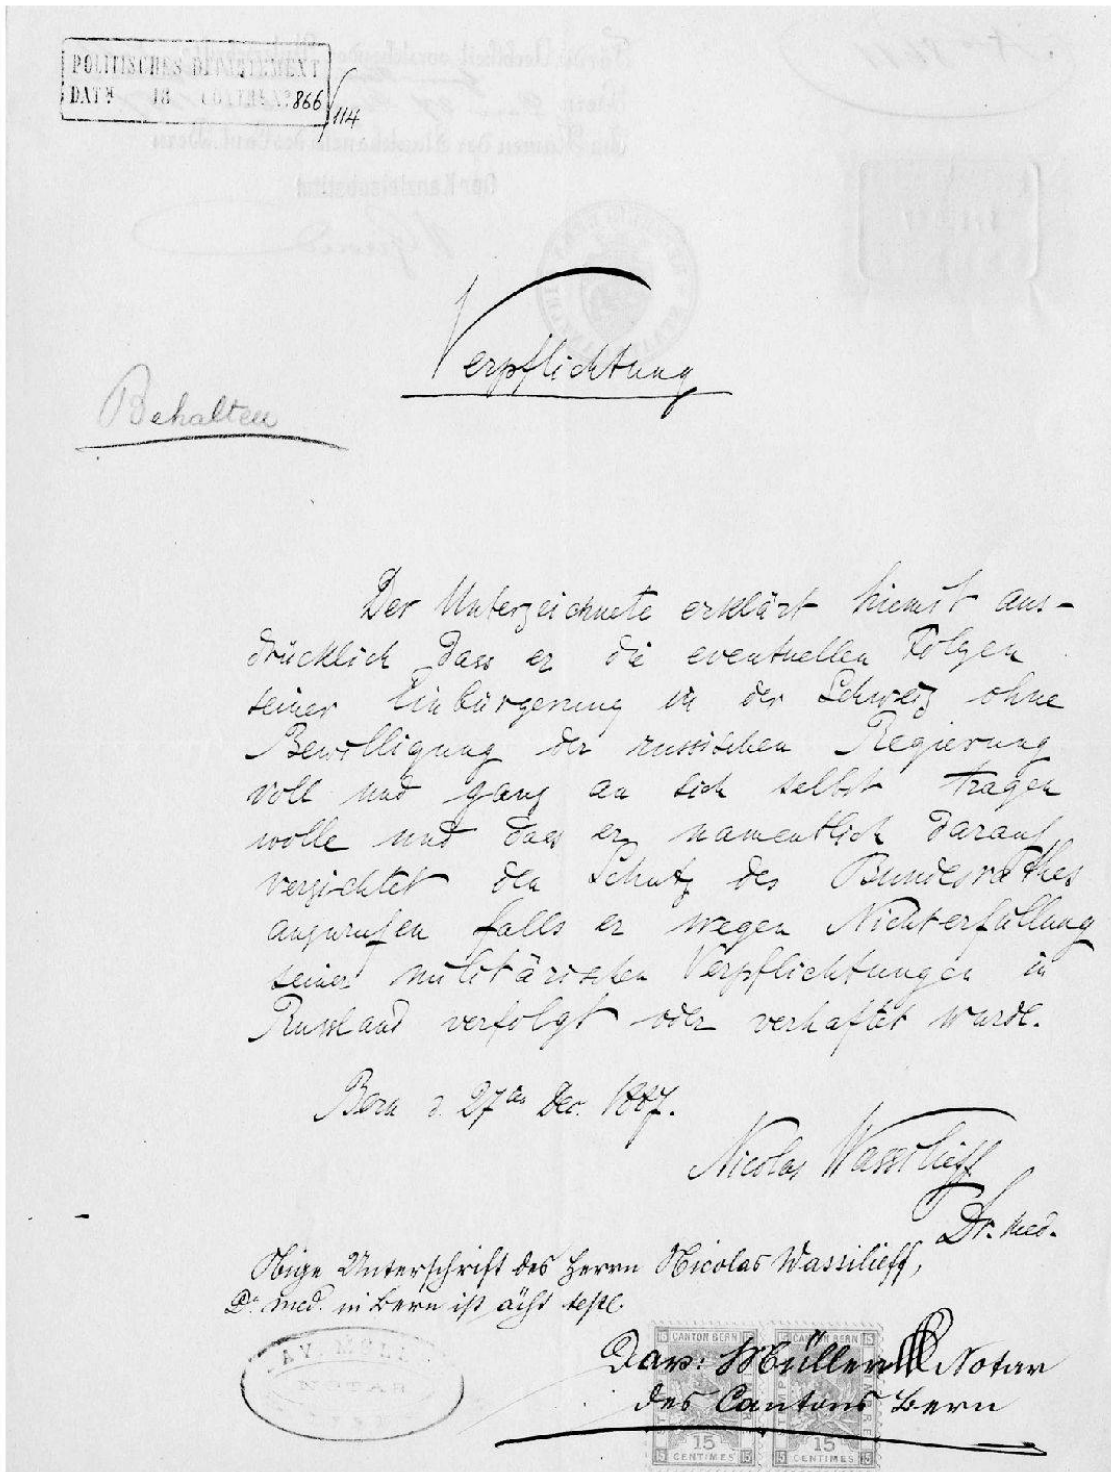 POLITISCHES DEPARTEMENT
DAT: 18 866/114
Verpflichtung
Behalten
Der Unterzeichnete erklärt hiemit aus-
drücklich dass er die eventuellen Folgen
seiner Einbürgerung in der Schweiz ohne
Bewilligung der russischen Regierung
voll und ganz an sich selbst tragen
wolle und dass er namentlich darauf
verzichtet den Schutz des Bundesrathes
anzurufen falls er wegen Nichterfüllung
seiner militärischen Verpflichtungen in
Russland verfolgt oder verhaftet wurde.
Bern d. 27ten Dec. 1887.
Nicolas Wassilieff
Dr. med.
Obige Unterschrift des Herrn Nicolas Wassilieff,
Dr. med. in Bern ist ächt
Dav: Müller Notar
des Cantons Bern
NOTAR
15 CANTON BERN 15
15 CANTON BERN 15
15 CENTIMES 15
15 CENTIMES 15